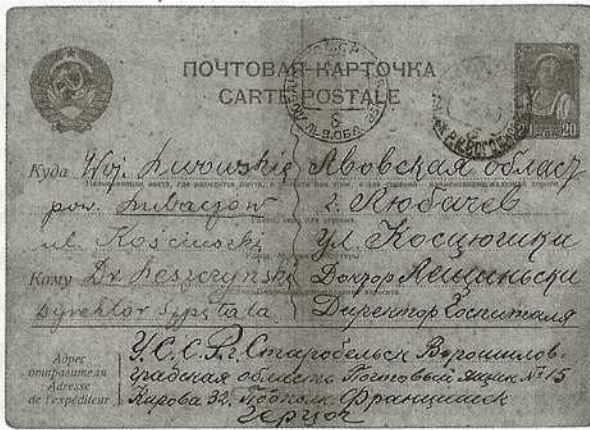 ПОЧТОВАЯ КАРТОЧКА
CARTE POSTALE
20
Куда Woj. Lwowskie Львовская област
pow. Lubaczow г. Любачев
ul. Kościuszki ул Косцюшки
Кому Dr. Leszczynski Доктор Лещиньски
Dyrektor Szpitala Директор Госпиталя
Адрес отправителя
Adresse de l'expéditeur
У.С.С.Р. г. Старобельск Ворошилов-
градская область Почтовый ящик № 15
Кирова 32. Францишек